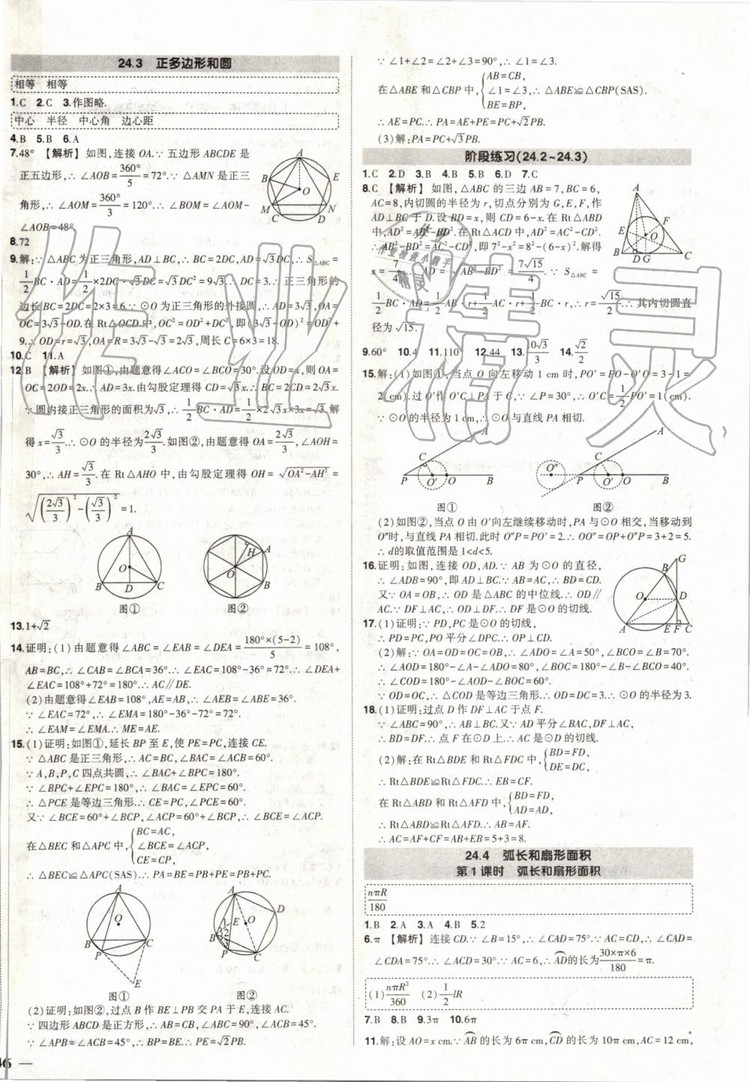 24.3 正多边形和圆
相等 相等
1.C 2.C 3.作图略.
中心 半径 中心角 边心距
4.B 5.B 6.A
7.48° 【解析】如图,连接 OA.∵ 五边形 ABCDE 是
正五边形,∴ ∠AOB=360°/5=72°.∵ △AMN 是正三
角形,∴ ∠AOM=360°/3=120°.∴ ∠BOM=∠AOM-
∠AOB=48°.
8.72
9.解:∵ △ABC 为正三角形,AD⊥BC,∴ AD=√3DC.∵ S△ABC=
1/2BC·AD=1/2×2DC·√3DC=√3DC²=9√3,∴ DC=3.∴ 正三角形的
边长 BC=2DC=2×3=6.∵ ⊙O 为正三角形的外接圆,∴ AD=3√3,OA=
OC=2OD.在 Rt△OCD 中,OC²=OD²+DC²,
∴ OD=r=√3,OA=R=AD-OD=3√3-√3=2√3,周长 C=6×3=18.
10.C 11.A
12.B 【解析】如图①,由题意得∠ACO=∠BCO=30°.设 OD=x,则 OA=
OC=2OD=2x.∴ AD=3x.由勾股定理得 CD=√3x.∴ BC=2CD=2√3x.
∵ 圆内接正三角形的面积为√3,∴ 1/2BC·AD=1/2×2√3x×3x=√3.解
得 x=√3/3.∴ ⊙O 的半径为2√3/3.如图②,由题意得 OA=2√3/3,∠AOH=
30°,∴ AH=√3/3.在 Rt△AHO 中,由勾股定理得 OH=√(OA²-AH²)=
√((2√3/3)²-(√3/3)²)=1.
图① 图②
13.1+√2
14.证明:(1)由题意得∠ABC=∠EAB=∠DEA=180°×(5-2)/5=108°,
AB=BC,∴ ∠CAB=∠ACB=36°.∴ ∠EAC=108°-36°=72°.∴ ∠DEA+
∠EAC=108°+72°=180°.∴ AC∥DE.
(2)由题意得∠EAB=108°,AE=AB,∴ ∠AEB=∠ABE=36°.
∵ ∠EAC=72°,∴ ∠EMA=180°-36°-72°=72°.
∴ ∠EAM=∠EMA.∴ ME=AE.
15.(1)证明:如图①,延长 BP 至 E,使 PE=PC,连接 CE.
∵ △ABC 是正三角形,∴ AC=BC,∠BAC=∠ACB=60°.
∵ A,B,P,C 四点共圆,∴ ∠BAC+∠BPC=180°.
∵ ∠BPC+∠EPC=180°,∴ ∠BAC=∠EPC=60°.
∴ △PCE 是等边三角形.∴ CE=PC,∠PCE=60°.
又∵ ∠BCE=60°+∠BCP,∠ACP=60°+∠BCP,∴ ∠BCE=∠ACP.
在△BEC 和△APC 中,{BC=AC, ∠BCE=∠ACP, CE=CP,
∴ △BEC≌△APC(SAS).∴ PA=BE=PB+PE=PB+PC.
图① 图②
(2)证明:如图②,过点 B 作 BE⊥PB 交 PA 于 E,连接 AC.
∵ 四边形 ABCD 是正方形,∴ ∠ACB=45°.
∴ ∠APB=∠ACB=45°,∴ BP=BE,∴ PE=√2PB.
46
∵ ∠1+∠2=∠2+∠3=90°,∴ ∠1=∠3.
在△ABE 和△CBP 中,{AB=CB, ∠1=∠3, BE=BP, ∴ △ABE≌△CBP(SAS).
∴ AE=PC.∴ PA=AE+PE=PC+√2PB.
(3)解:PA=PC+√3PB.
阶段练习(24.2~24.3)
1.C 2.D 3.B 4.C 5.D 6.A 7.C
8.C 【解析】如图,△ABC 的三边 AB=7,BC=6,
AC=8,内切圆的半径为 r,切点分别为 G,E,F,作
AD⊥BC 于 D.设 BD=x,则 CD=6-x.在 Rt△ABD
中,AD²=AB²-BD².在 Rt△ACD 中,AD²=AC²-
CD².∴ AB²-BD²=AC²-CD²,即7²-x²=8²-(6-x)².解得
9.60° 10.4 11.110° 12.44
15.解:(1)如图①,当点 O 向左移动1 cm时,PO'=PO-O'O=3-1=
2(cm).过 O'作 O'C⊥PA 于 C,∵ ∠P=30°,∴ O'C=1/2PO'=1(cm).
∵ ⊙O 的半径为1 cm,∴ ⊙O 与直线 PA 相切.
图① 图②
(2)如图②,当点 O 由 O'向左继续移动时,PA 与⊙O 相交,当移动到
O″时,与直线 PA 相切.此时 O″P=PO'=2.∴ OO″=OP+O″P=3+2=5.
∴ d的取值范围是1<d<5.
16.证明:如图,连接 OD,AD.∵ AB 为⊙O 的直径,
∴ ∠ADB=90°,即 AD⊥BC.∵ AB=AC,∴ BD=CD.
又∵ OA=OB,∴ OD 是△ABC 的中位线.∴ OD∥
AC.∵ DF⊥AC,∴ OD⊥DF.∴ DF 是⊙O 的切线.
17.(1)证明:∵ PD,PC 是⊙O 的切线,
∴ PD=PC,PO 平分∠DPC.∴ OP⊥CD.
(2)解:∵ OA=OD=OC=OB,∴ ∠ADO=∠A=50°,∠BCO=∠B=70°.
∴ ∠AOD=180°-∠A-∠ADO=80°,∠BOC=180°-∠B-∠BCO=40°.
∴ ∠COD=180°-∠AOD-∠BOC=60°.
∵ OD=OC,∴ △COD 是等边三角形.∴ OD=DC=3.∴ ⊙O 的半径为3.
18.(1)证明:过点 D 作 DF⊥AC 于点 F.
∵ ∠ABC=90°,∴ AB⊥BC.又∵ AD 平分∠BAC,DF⊥AC,
∴ BD=DF.∴ 点 F 在⊙D 上.∴ AC 是⊙D 的切线.
(2)解:在 Rt△BDE 和 Rt△FDC 中,{BD=FD, DE=DC,
∴ Rt△BDE≌Rt△FDC.∴ EB=CF.
在 Rt△ABD 和 Rt△AFD 中,{BD=FD, AD=AD,
∴ Rt△ABD≌Rt△AFD.∴ AB=AF.
∴ AC=AF+CF=AB+EB=5+3=8.
24.4 弧长和扇形面积
第1课时 弧长和扇形面积
nπR/180
1.B 2.A 3.A 4.B 5.2
6.π 【解析】连接 CD.∵ ∠B=15°,∴ ∠CDA=75°.∵ AC=CD,∴ ∠CAD=
∠CDA=75°,∴ ∠ACD=30°.∵ AC=6,∴ AD的长为30×π×6/180=π.
(1)nπR²/360 (2)1/2lR
7.B 8.B 9.3π 10.6π
11.解:设 AO=x cm.∵ AB的长为6π cm,CD的长为10π cm,AC=12 cm,